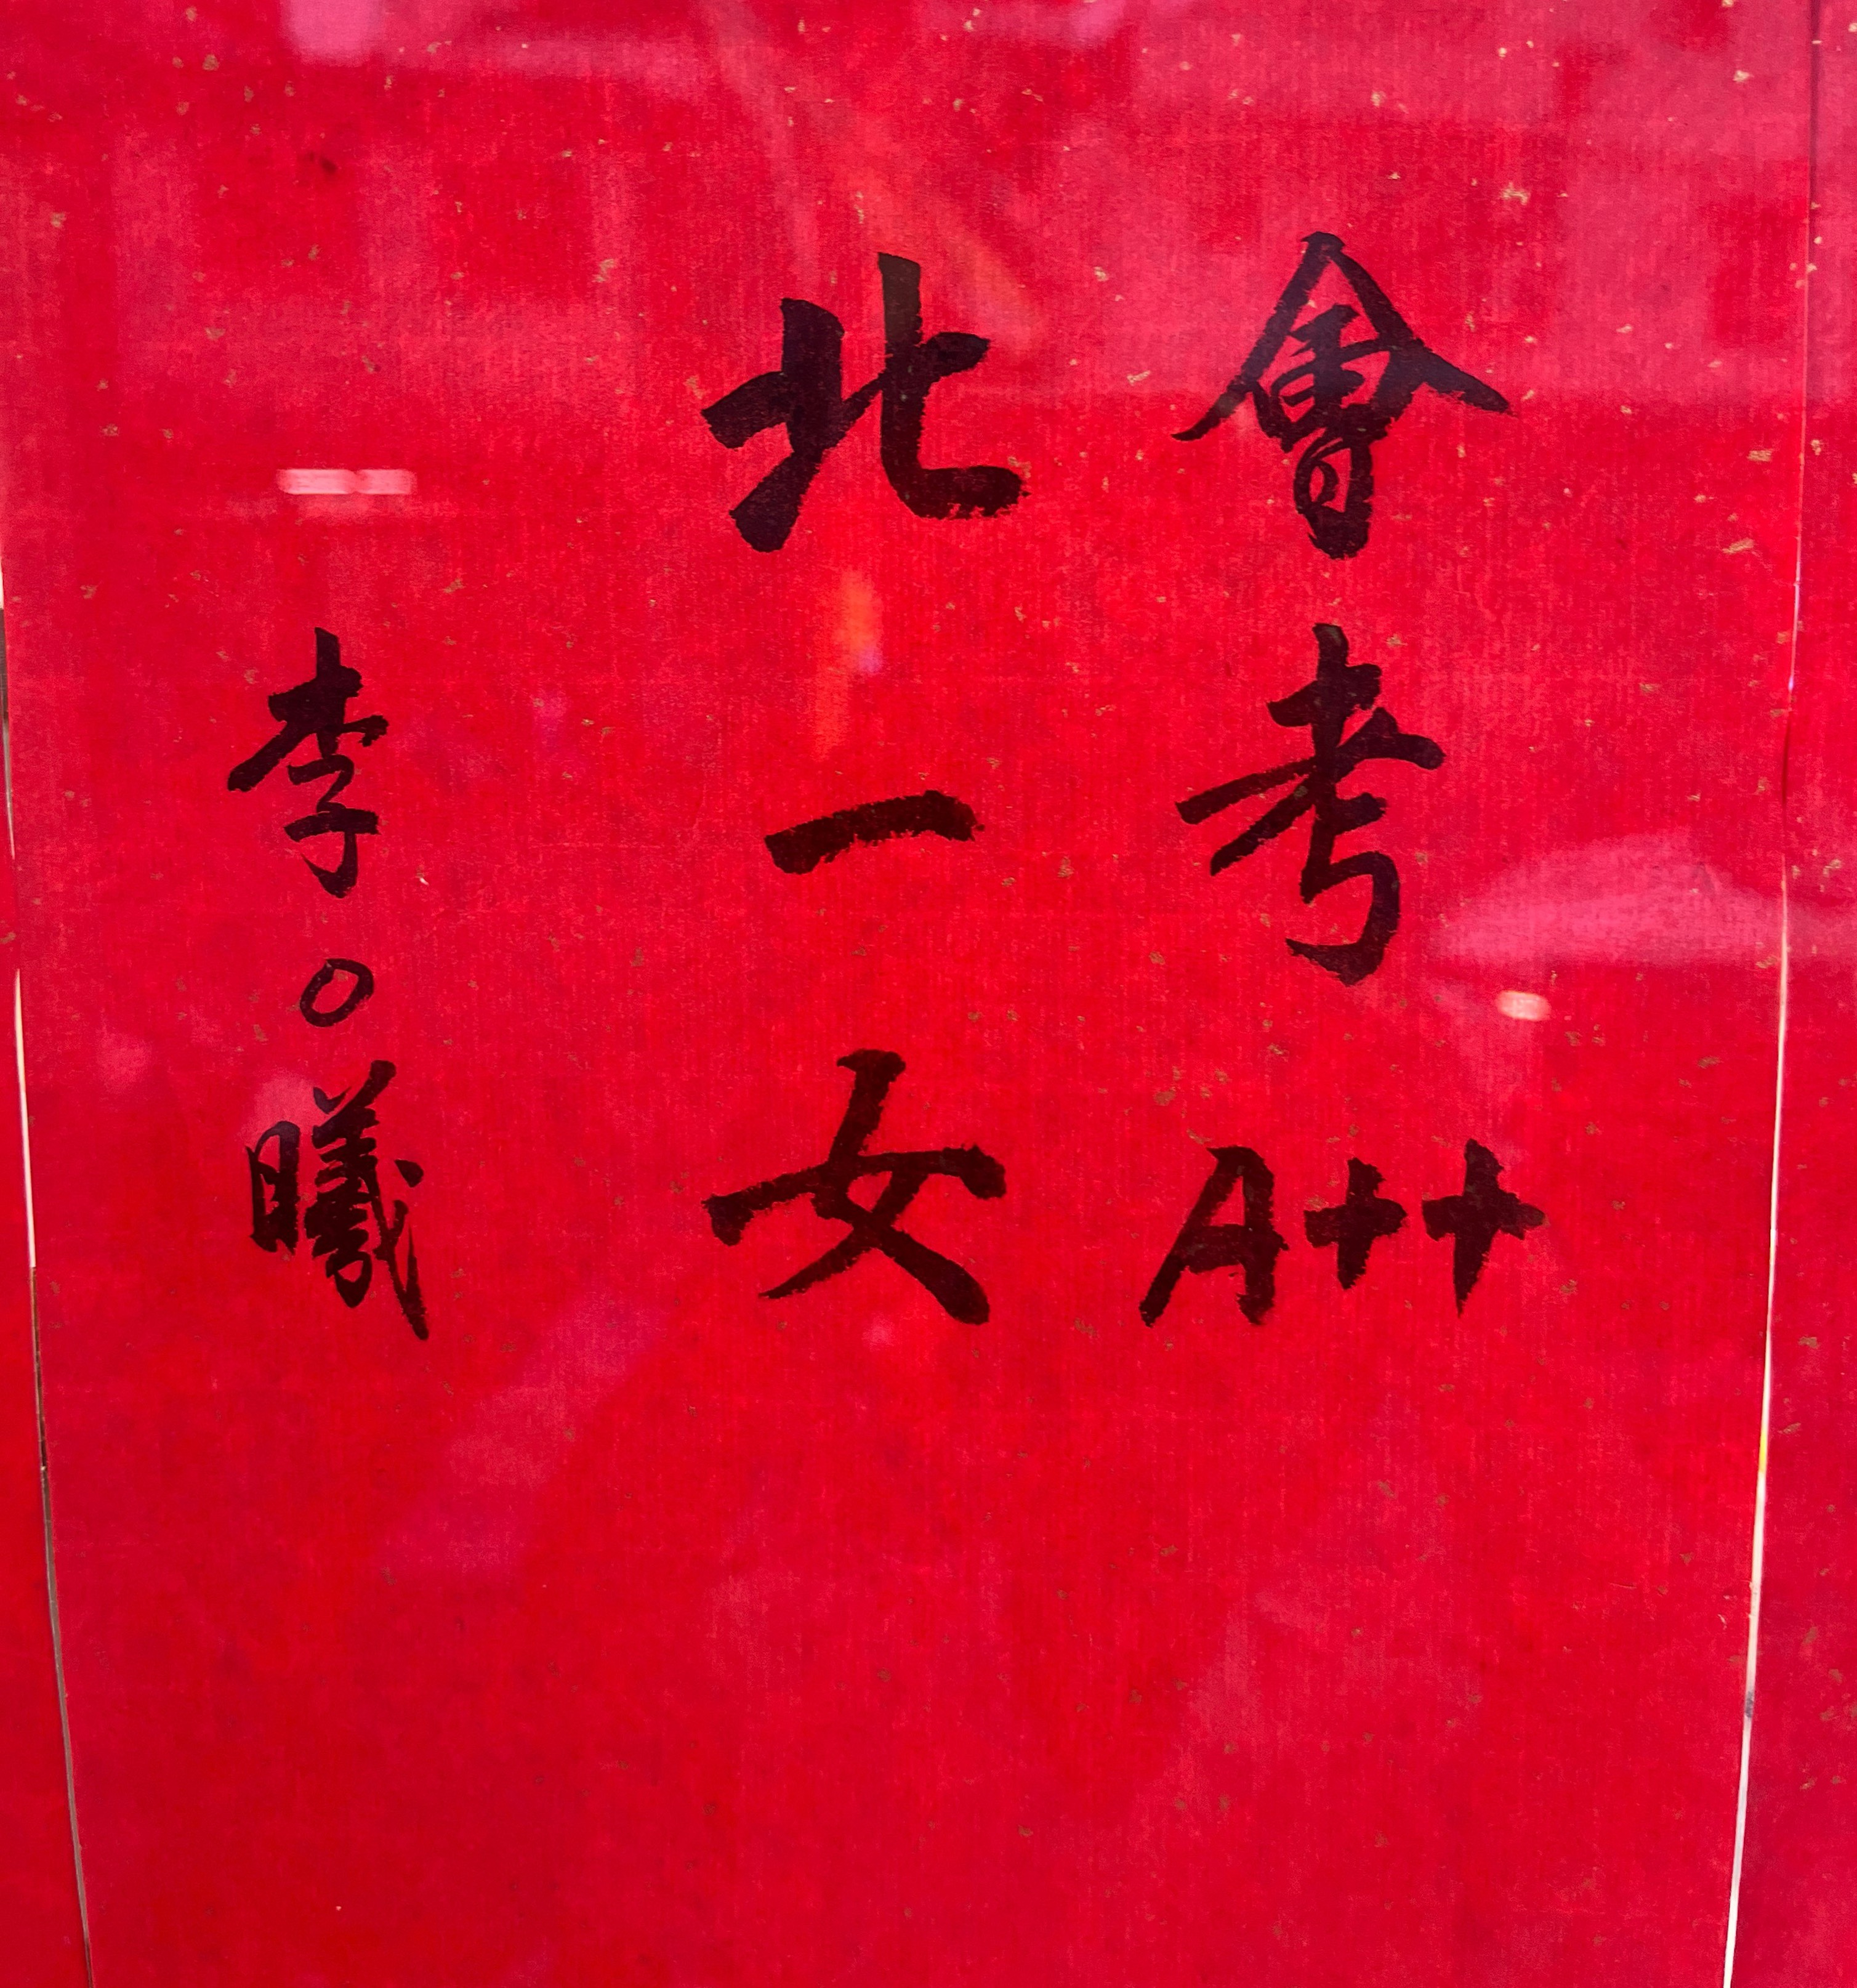 會考A++
北一女
李○曦